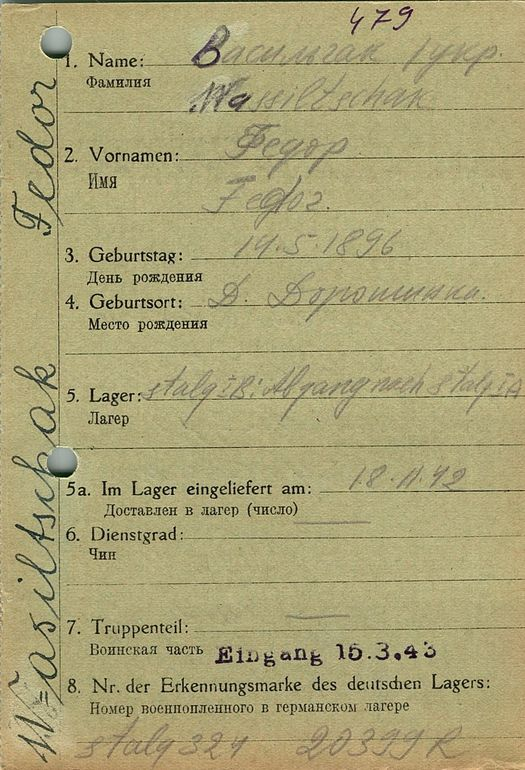 479
1. Name: Васильчак /укр.
Фамилия Wassiltschak
2. Vornamen: Федор
Имя Fedor.
3. Geburtstag: 14.5.1896
День рождения
4. Geburtsort: Д.
Место рождения
5. Lager: Stalg IB: Abgang nach Stalg IA
Лагер
5a. Im Lager eingeliefert am: 18.11.42
Доставлен в лагер (число)
6. Dienstgrad: —
Чин
7. Truppenteil: —
Воинская часть Eingang 15.3.43
8. Nr. der Erkennungsmarke des deutschen Lagers:
Номер военнопленного в германском лагере
Stalg 324 20399 R
Wasiltschak Fedor